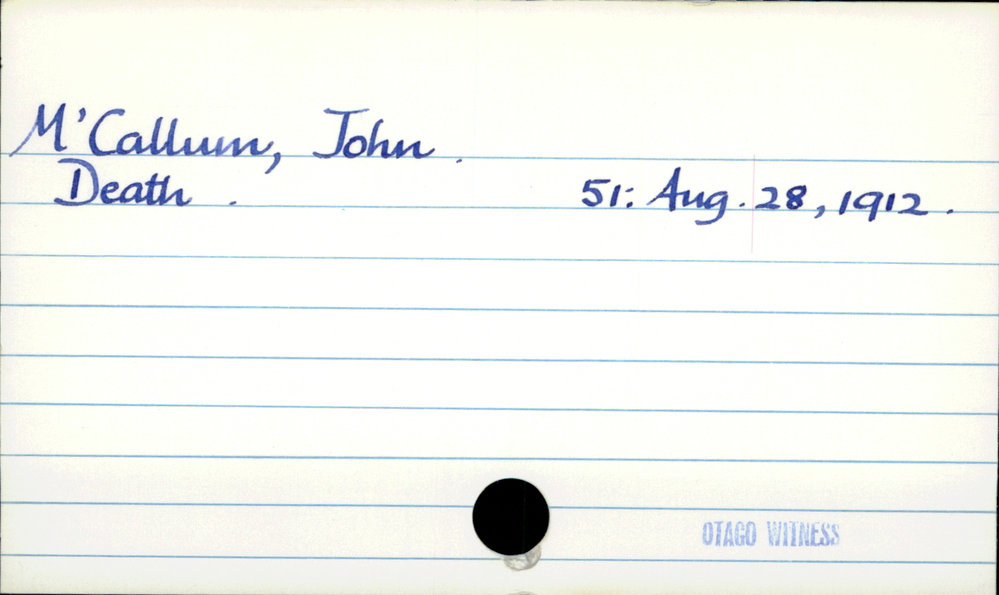 M'Callum, John.
Death. 51: Aug. 28, 1912.
OTAGO WITNESS